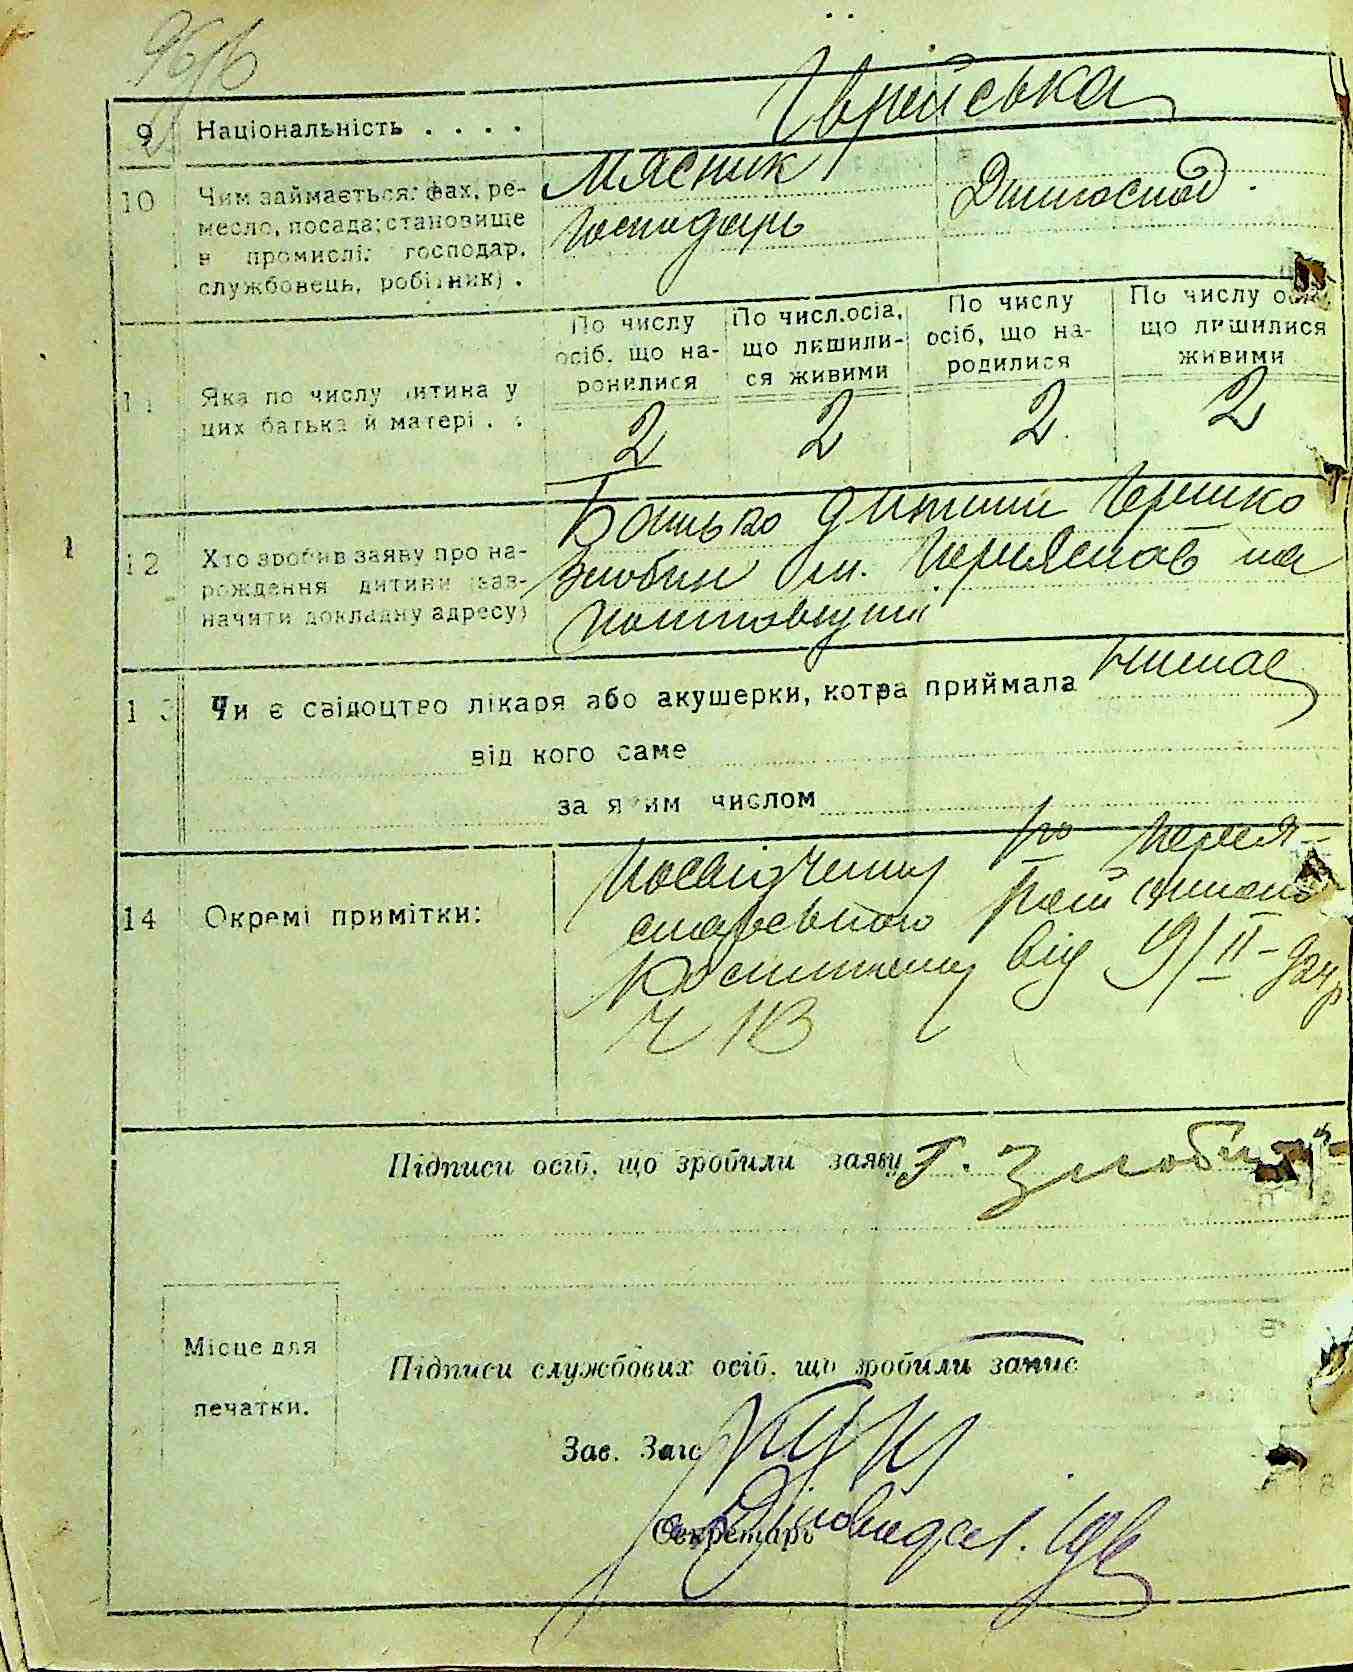 9 Національність . . . .
Єврейська
10 Чим займається: фах, ре-
месло, посада; становище
в промислі: господар,
службовець, робітник) .
Мясник
господарь
Домгоспод.
По числу
осіб, що на-
родилися
По числ.осіб,
що лишили-
ся живими
По числу
осіб, що на-
родилися
По числу осіб,
що лишилися
живими
11 Яка по числу дитина у
цих батька й матері . .
2 2 2 2
12 Хто зробив заяву про на-
рождення дитини (заз-
начити докладну адресу)
Батько дитини Гершко
Злобин м. Переяслав на
13 Чи є свідоцтво лікаря або акушерки, котра приймала
Немає
від кого саме
за яким числом
14 Окремі примітки:
по Перея-
славського
від 9/II-
Ч 113
Підписи осіб, що зробили заяву Г. Злобин
Місце для
печатки.
Підписи службових осіб, що зробили запис
Зав. Загс
Секретарь
Діловод